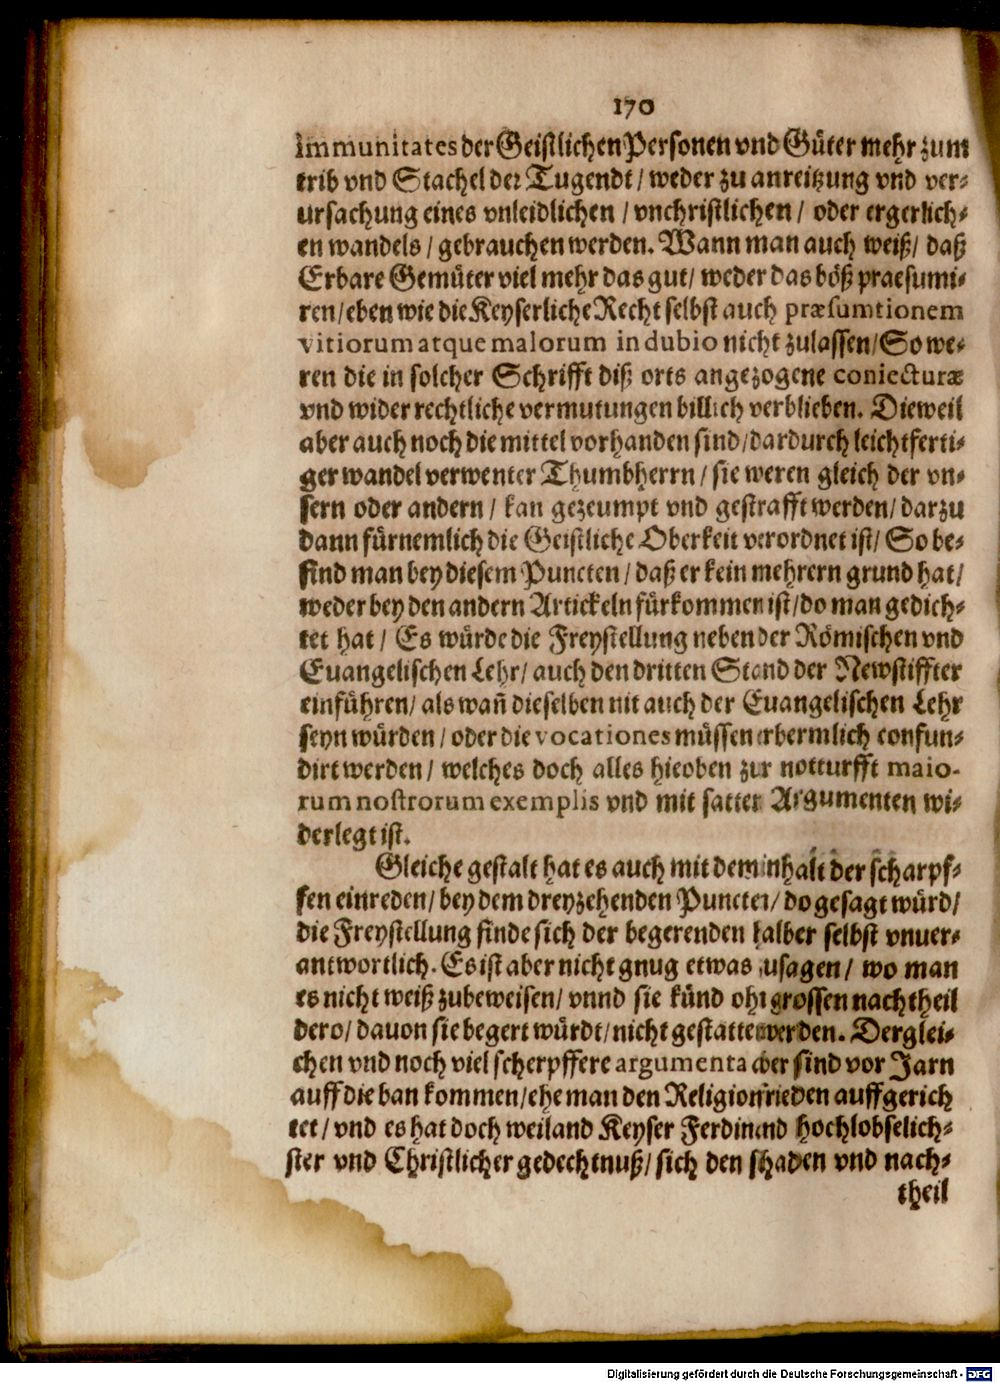 170
immunitates der Geistlichen Personen vnd Güter mehr zum
trib vnd Stachel der Tugendt / weder zu anreitzung vnd ver-
ursachung eines vnleidlichen / vnchristlichen / oder ergerlich-
en wandels / gebrauchen werden. Wann man auch weiß / daß
Erbare Gemüter viel mehr das gut / weder das böß praesumi-
ren / eben wie die Keyserliche Recht selbst auch præsumtionem
vitiorum atque malorum in dubio nicht zulassen / So we-
ren die in solcher Schrifft diß orts angezogene coniecturæ
vnd wider rechtliche vermutungen billich verblieben. Dieweil
aber auch noch die mittel vorhanden sind / dardurch leichtferti-
ger wandel verwenter Thumbherrn / sie weren gleich der vn-
sern oder andern / kan gezeumpt vnd gestrafft werden / darzu
dann fürnemlich die Geistliche Oberkeit verordnet ist / So be-
find man bey diesem Puncten / daß er kein mehrern grund hat /
weder bey den andern Artickeln fürkommen ist / do man gedich-
tet hat / Es würde die Freystellung neben der Römischen vnd
Euangelischen Lehr / auch den dritten Stand der Newstiffter
einführen / als wañ dieselben nit auch der Euangelischen Lehr
seyn würden / oder die vocationes müssen erbermlich confun-
dirt werden / welches doch alles hieoben zur notturfft maio-
rum nostrorum exemplis vnd mit satter Argumenten wi-
derlegt ist.
Gleiche gestalt hat es auch mit dem inhalt der scharpf-
fen einreden / bey dem dreyzehenden Puncten / do gesagt würd /
die Freystellung finde sich der begerenden halber selbst vnuer-
antwortlich. Es ist aber nicht gnug etwas zusagen / wo man
es nicht weiß zubeweisen / vnnd sie künd ohn grossen nachtheil
dero / dauon sie begert würdt / nicht gestattet werden. Derglei-
chen vnd noch viel scherpffere argumenta aber sind vor Jarn
auff die ban kommen / ehe man den Religionfrieden auffgerich
tet / vnd es hat doch weiland Keyser Ferdinand hochlobselich-
ster vnd Christlicher gedechtnuß / sich den schaden vnd nach-
theil
Digitalisierung gefördert durch die Deutsche Forschungsgemeinschaft - DFG